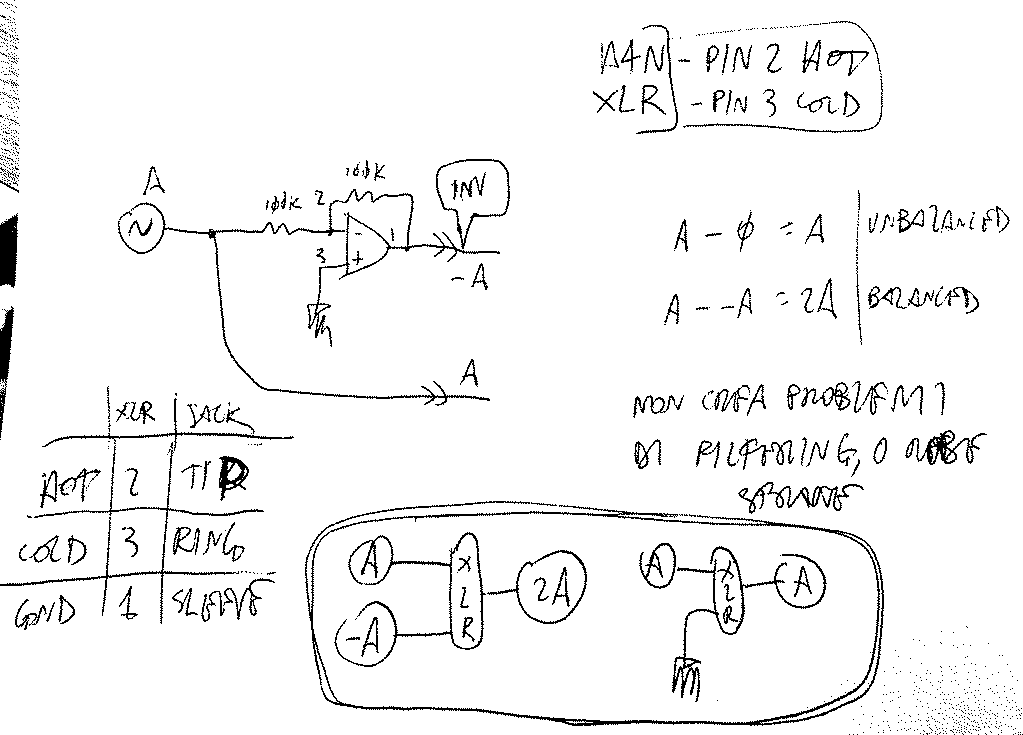 MAN - PIN 2 HOT
XLR - PIN 3 COLD
A
100K
100K
2
3
1
- +
INV
-A
A
A - ϕ = A UNBALANCED
A - -A = 2A BALANCED
NON CREA PROBLEMI
DI FILTERING, O ROBE
STRANE
XLR JACK
HOT 2 TIP
COLD 3 RING
GND 1 SLEEVE
A XLR 2A
-A
A XLR A